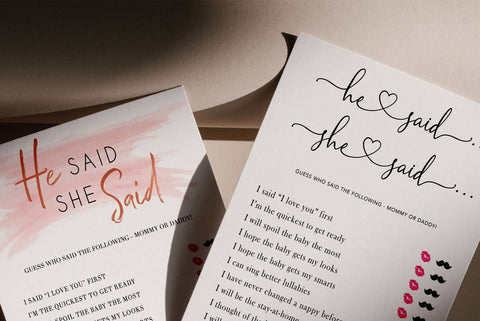 He SAID
SHE Said
GUESS WHO SAID THE FOLLOWING - MOMMY OR DADDY!
I SAID "I LOVE YOU" FIRST
I'M THE QUICKEST TO GET READY
I WILL SPOIL THE BABY THE MOST
I HOPE THE BABY GETS MY LOOKS
BABY GETS MY SMARTS
he said...
she said...
GUESS WHO SAID THE FOLLOWING - MOMMY OR DADDY!
I said "I love you" first
I'm the quickest to get ready
I will spoil the baby the most
I hope the baby gets my looks
I hope the baby gets my smarts
I can sing better lullabies
I have never changed a nappy before
I will be the stay-at-home
I thought of the